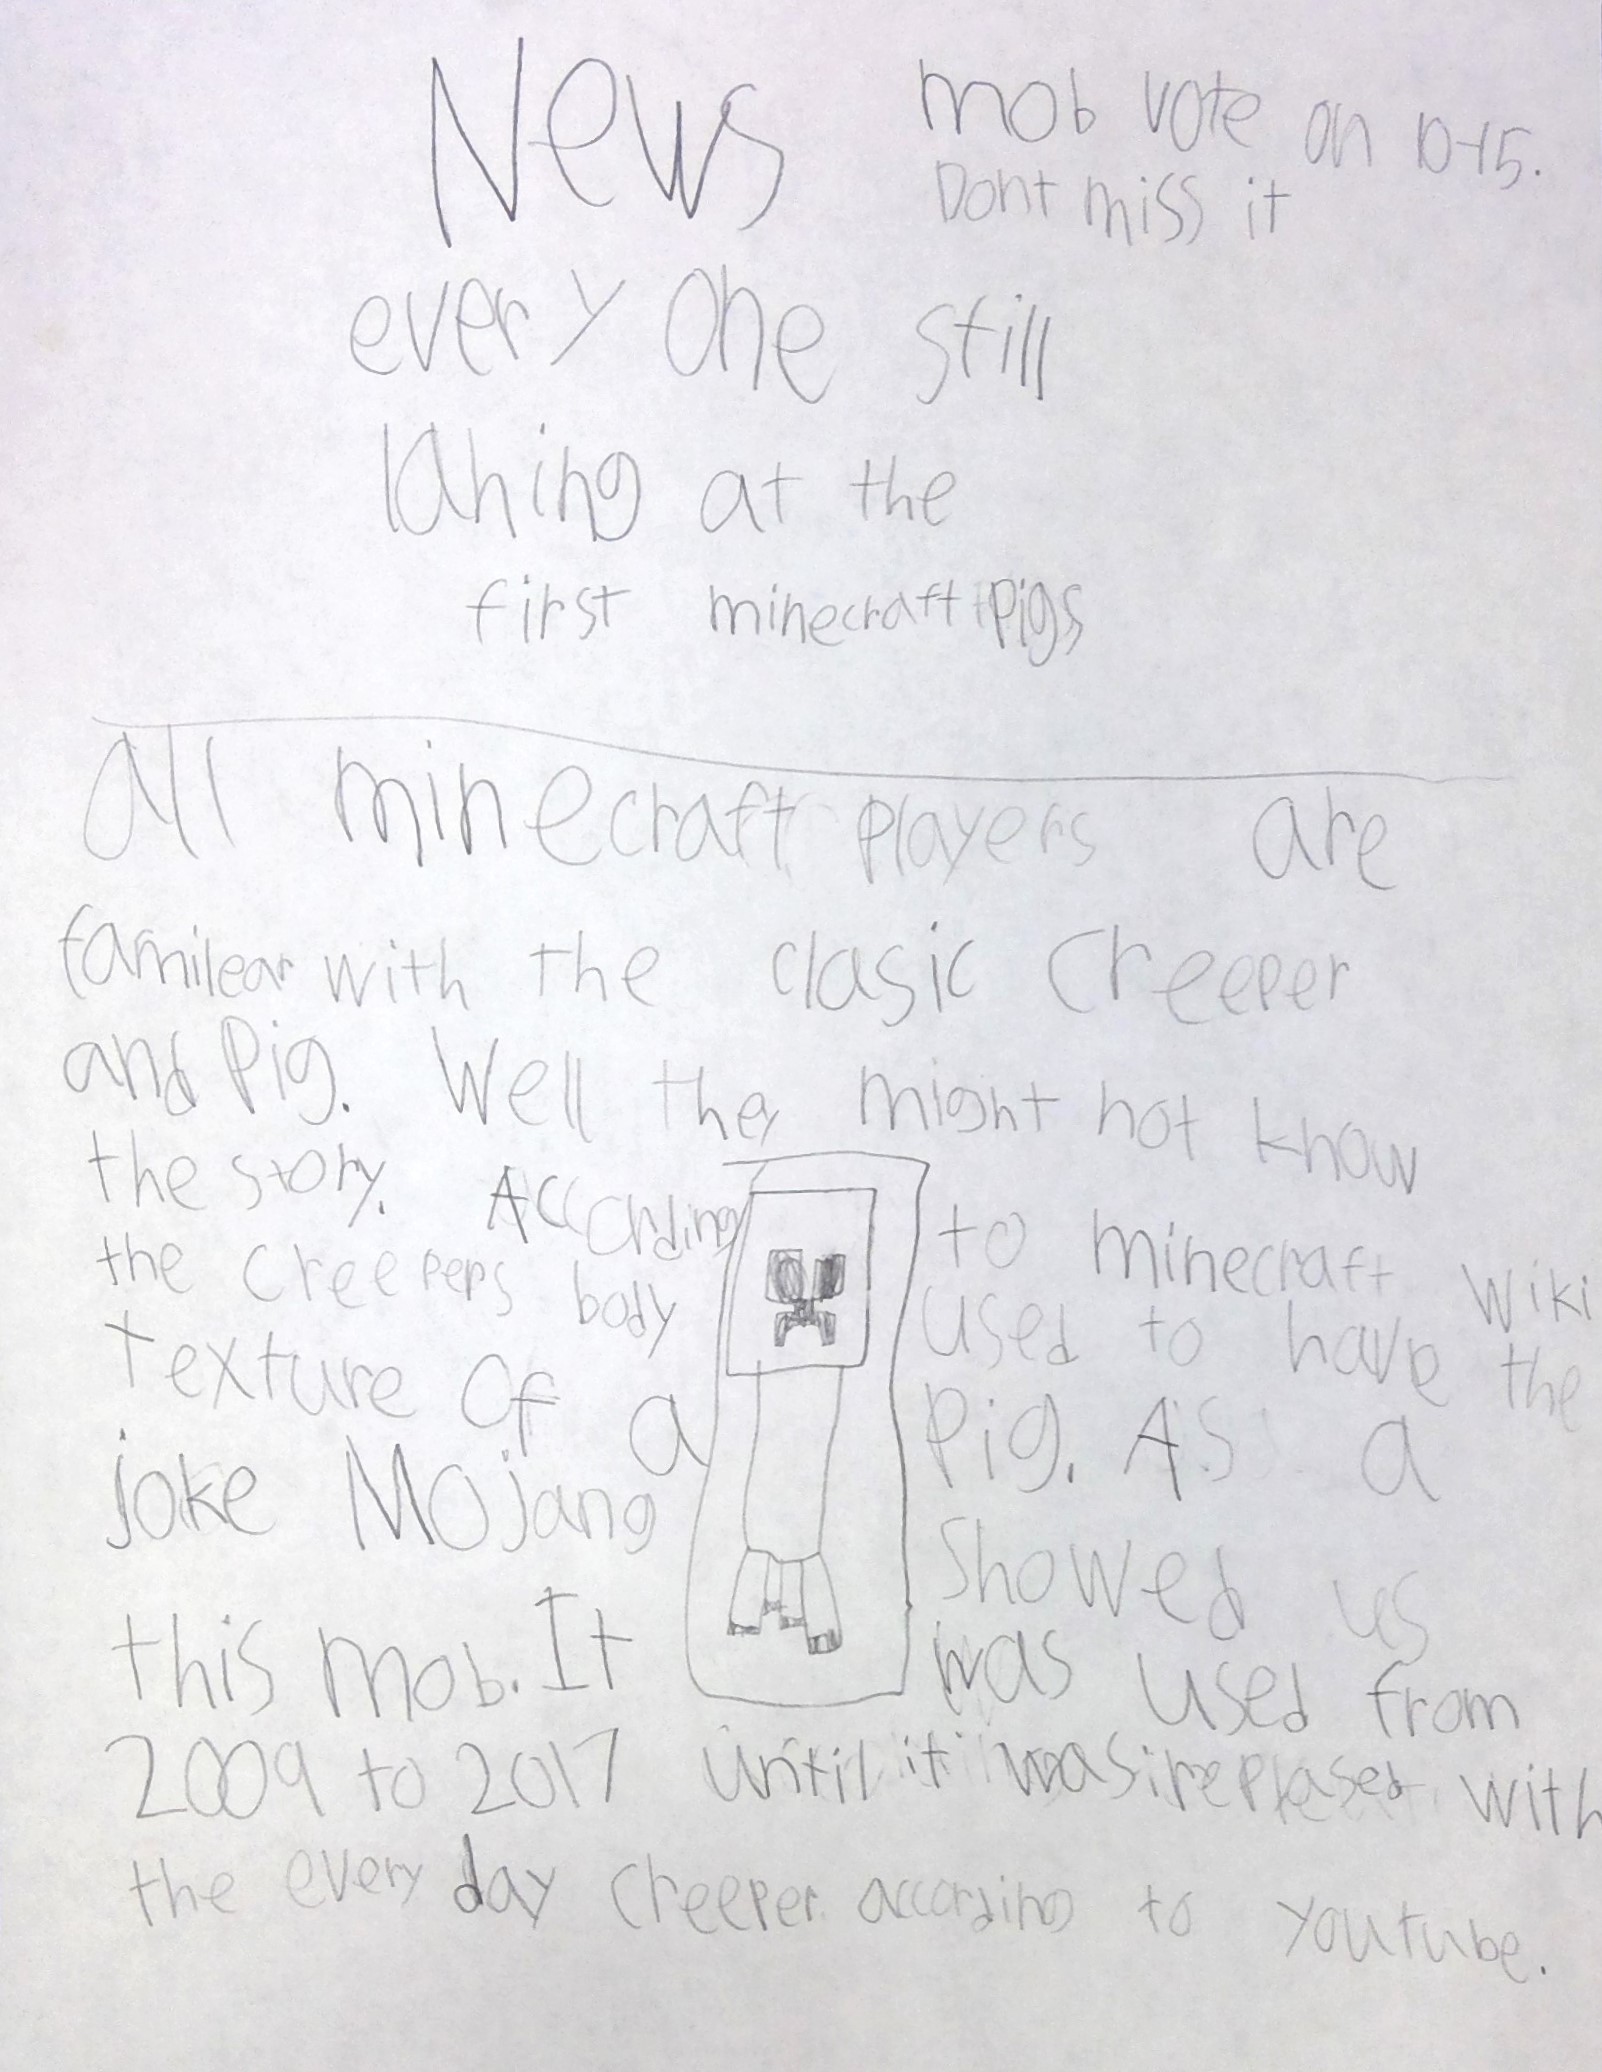 News
mob vote on 10-15.
Dont miss it
every one still
lahing at the
first minecraft Pigs
All minecraft players are
familear with the clasic Creeper
and Pig. Well they might not know
the story. According to minecraft wiki
the creepers body used to have the
texture of a Pig. As a
joke Mojang showed us
this mob. It was used from
2009 to 2017 until it was replased with
the every day creeper according to youtube.